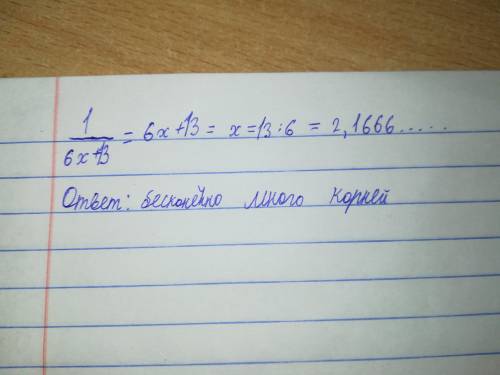 1/(6x+13) = 6x+13 = x=13:6 = 2,1666.....
Ответ: бесконечно много корней